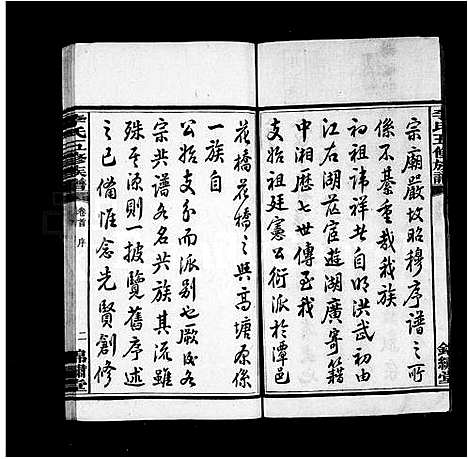 宗廟嚴故昭穆序譜之所
係不綦重哉我族
初祖諱祥自明洪武初由
江右湖茫宦遊湖廣寄籍
中湘歷七世傳至我
支始祖廷憲公衍派於潭邑
花橋花橋之與高塘原係
一族自
公始支分而派別也厥後各
宗其譜各名其族其流雖
殊其源則一披覽舊序述
之已備惟念先賢創修
李氏五修族譜 卷首 序 二 錦繡堂